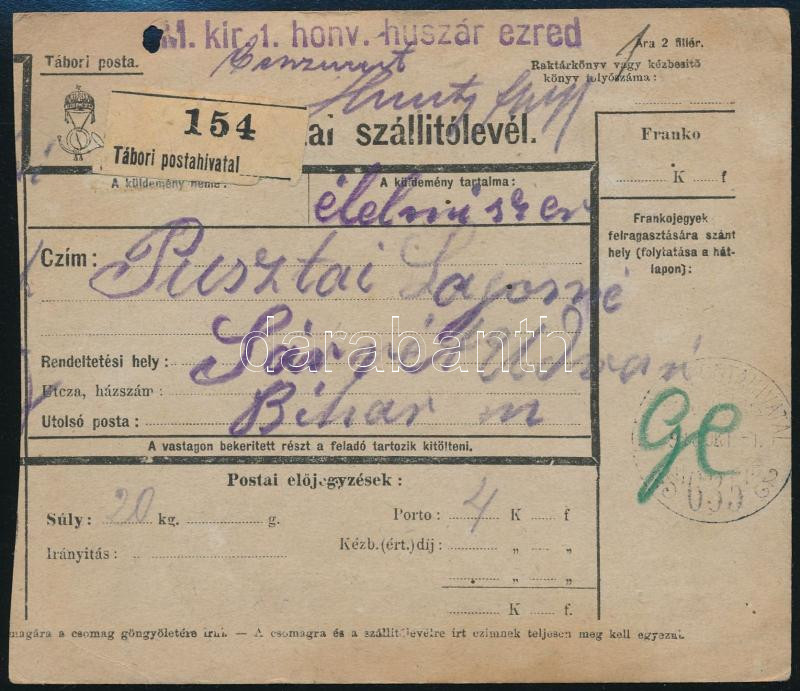 M. kir. 1. honv. huszár ezred
Tábori posta.
Ára 2 fillér.
Raktárkönyv vagy kézbesitő
könyv folyószáma:
154
Tábori postahivatal
ai szállitólevél.
Franko
K f
A küldemény neme:
A küldemény tartalma:
élelmiszer
Frankojegyek
felragasztására szánt
hely (folytatása a hát-
lapon):
Czím: Pusztai Lajosné
darabanth
Rendeltetési hely:
Utcza, házszám:
Utolsó posta: Bihar m
A vastagon bekeritett részt a feladó tartozik kitölteni.
635
Postai előjegyzések:
Súly: 20 kg. g.
Porto: 4 K f
Irányitás:
Kézb.(ért.) díj: „ „
„ „
K f.
magára a csomag göngyöletére irni. — A csomagra és a szállitólevélre irt czimnek teljesen meg kell egyezni.